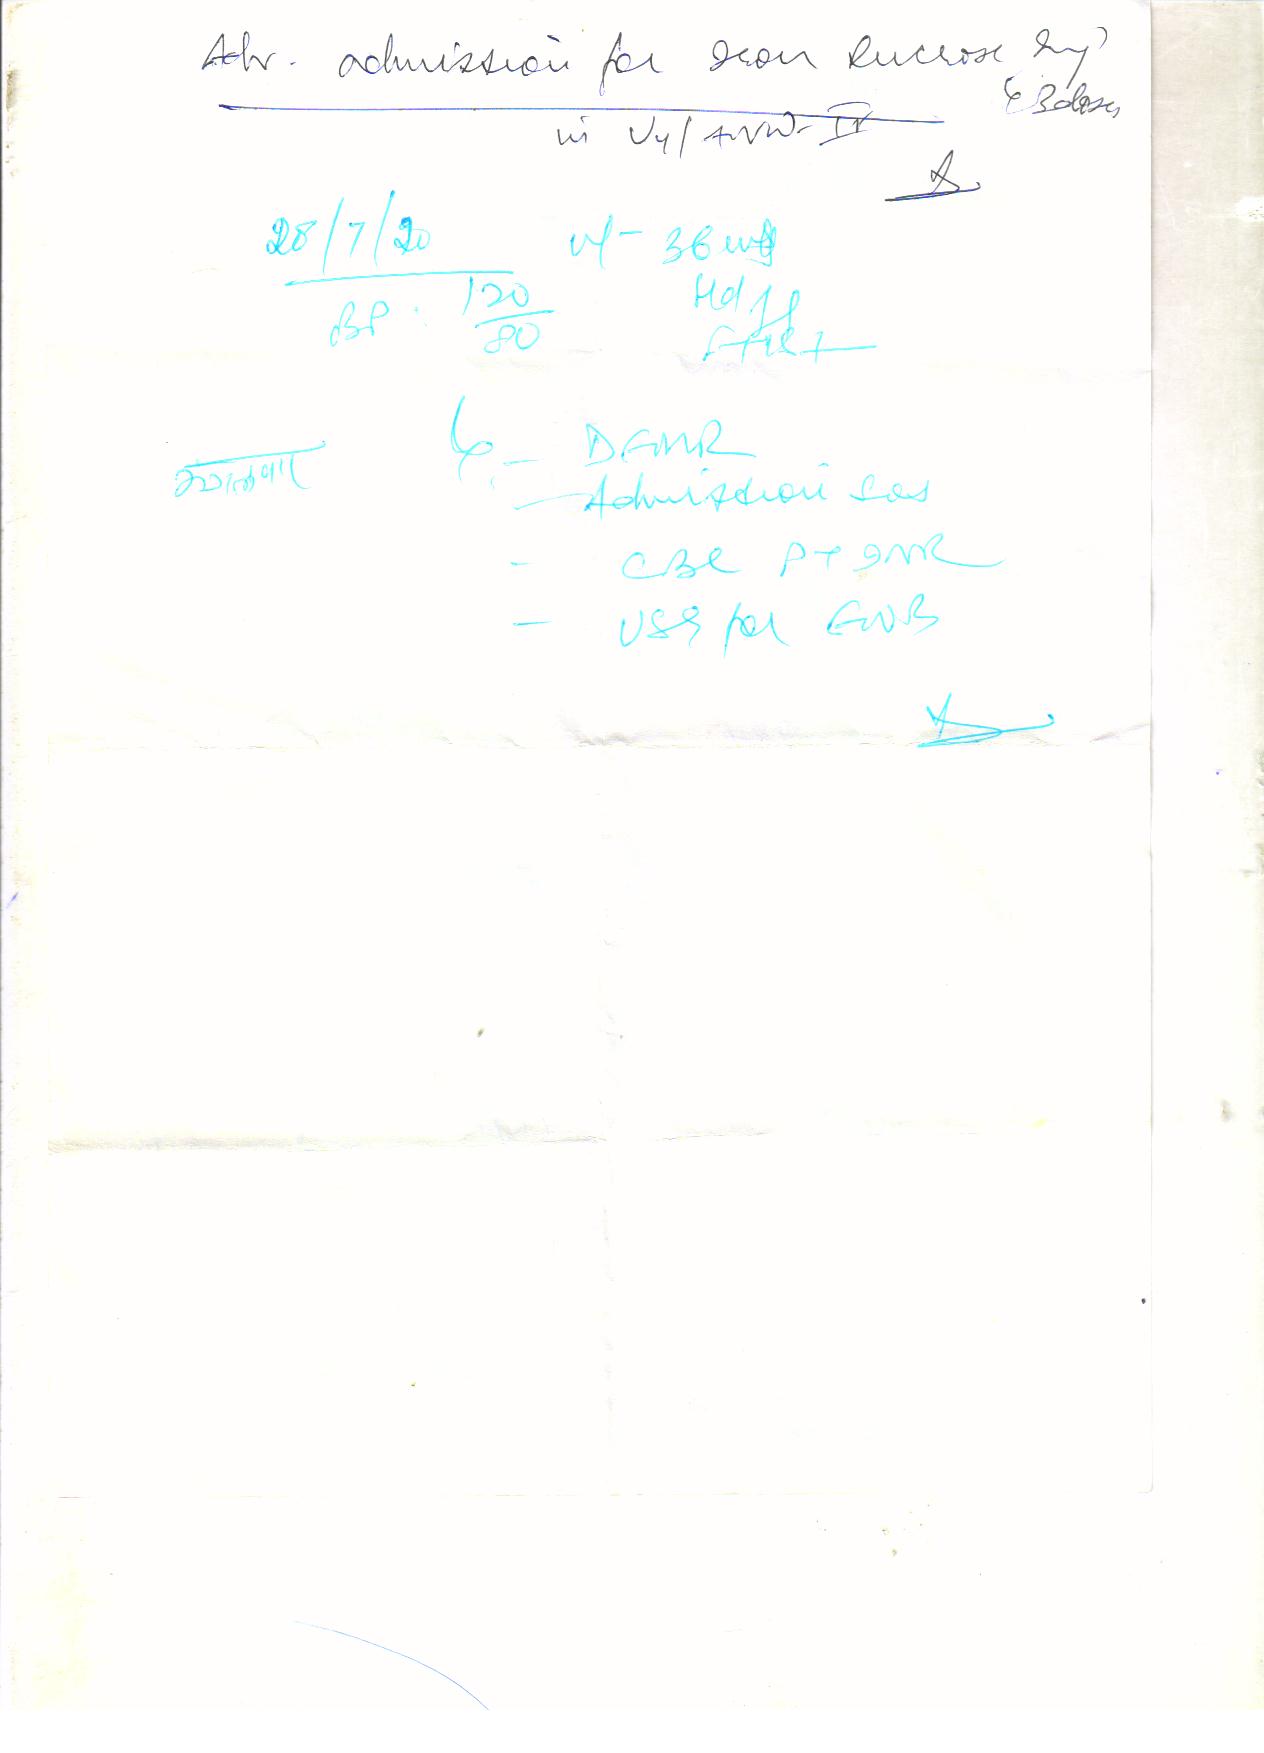 Adv. admission for Iron Sucrose Inj
3 doses
in U4/ANW-IV
28/7/20 ut - 36 wks
BP. 120/80 Hd
FHR+
- DFMR
- Admission sos
- CBC PT INR
- USG for FWB